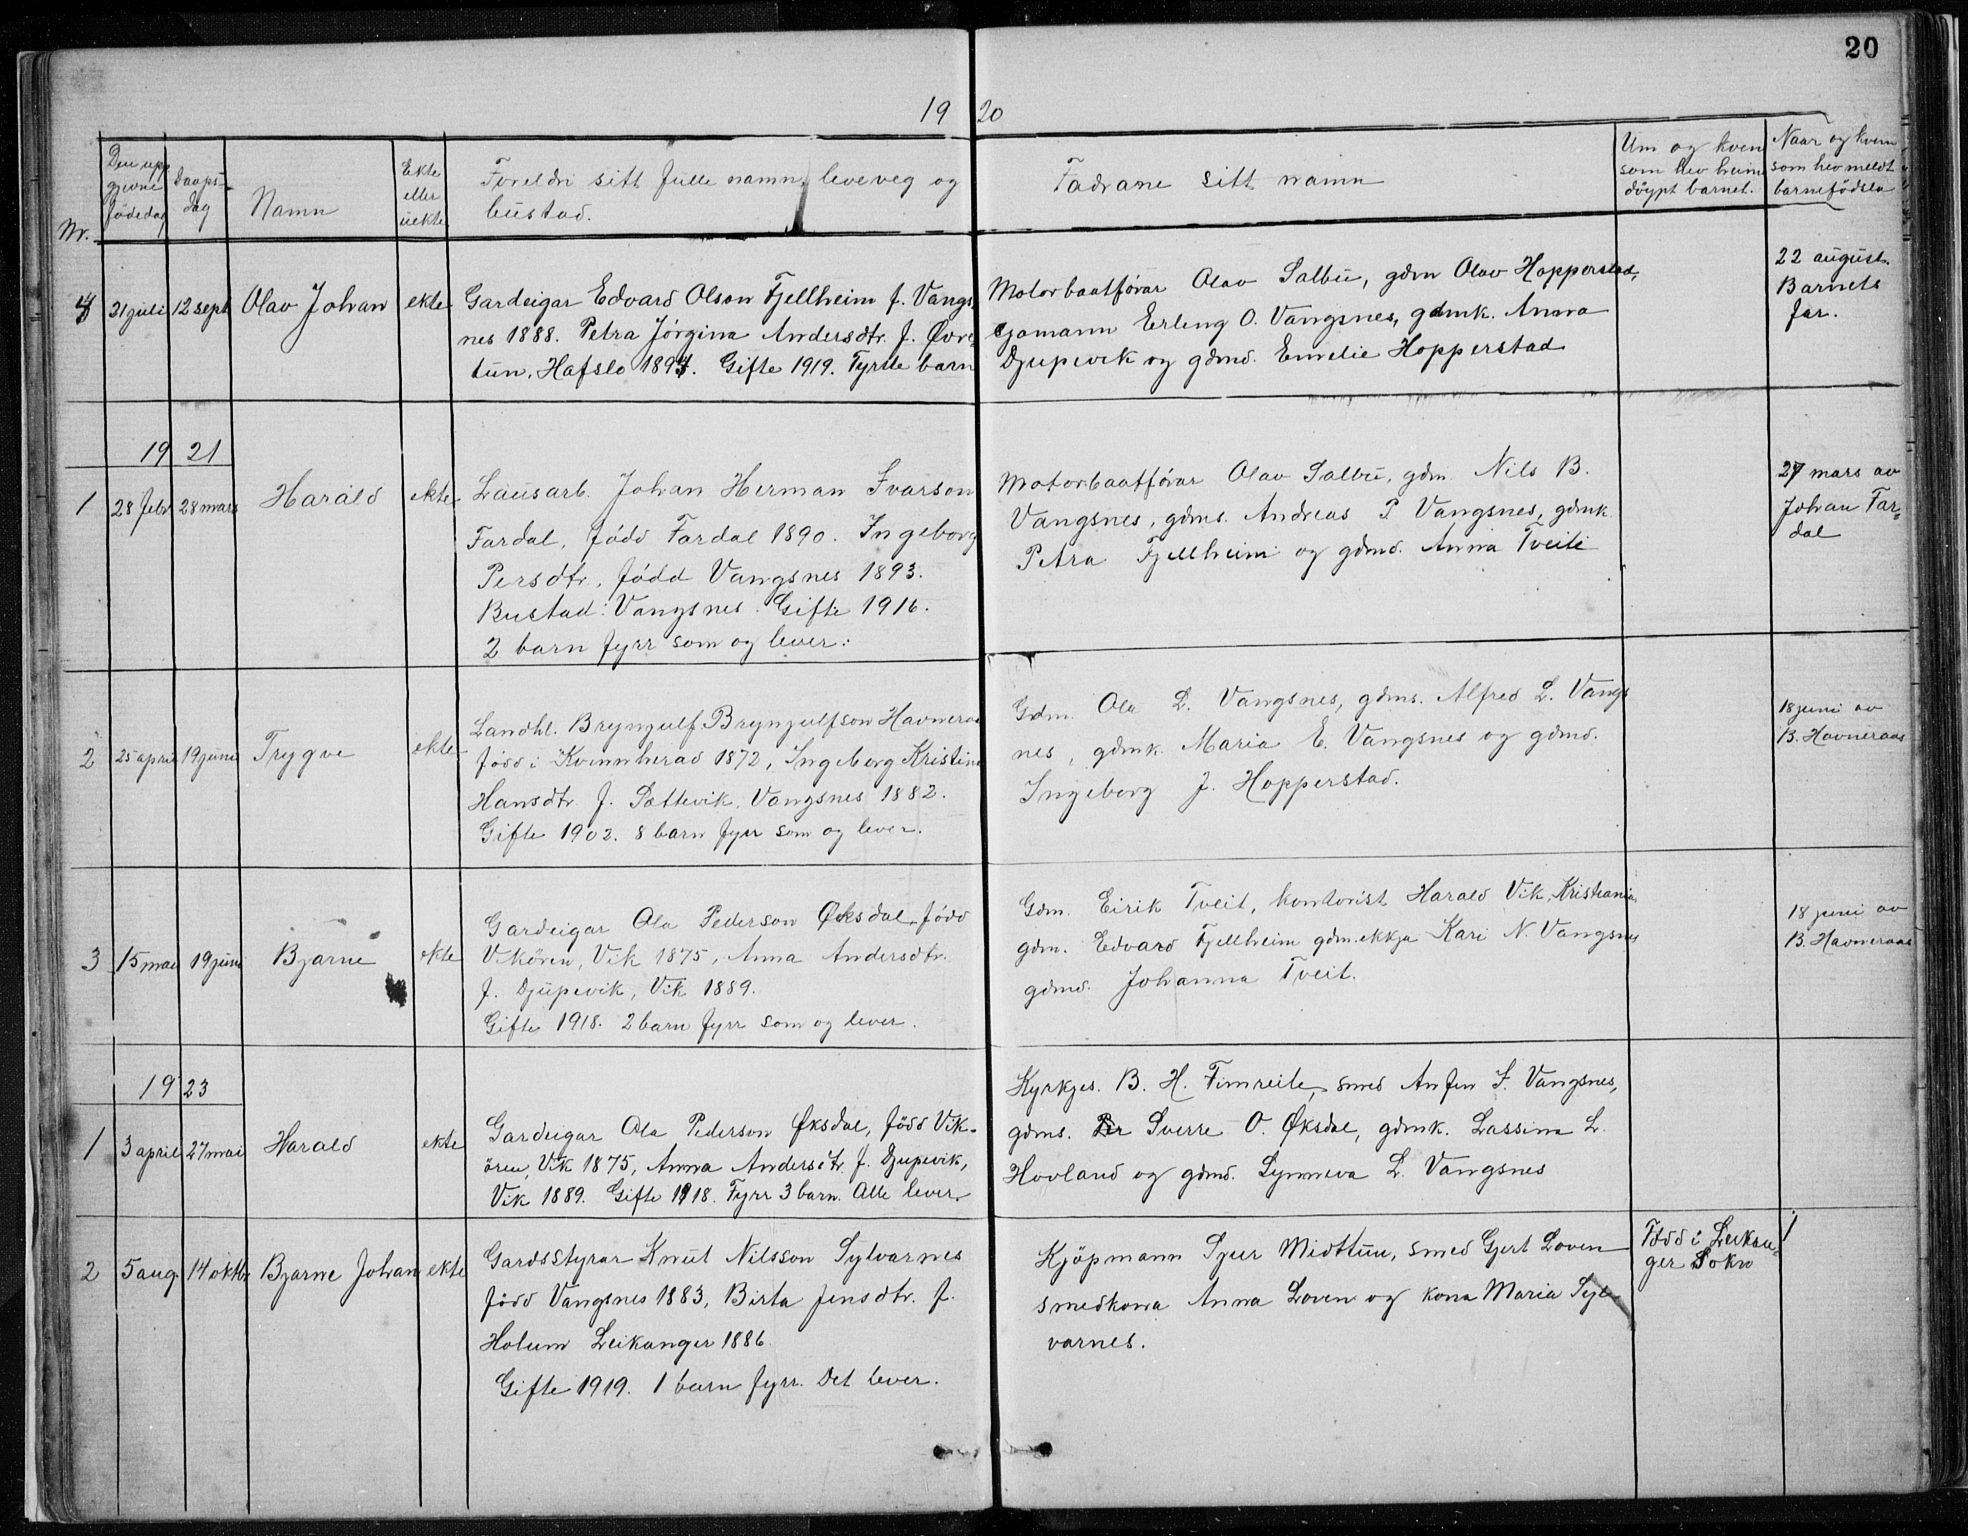 20
19 20
Nr.
Den upp
gjevne
födedag
Daaps-
dag
Namn
Ekte
eller
uekte
Foreldri sitt fulle namn, leveveg og
bustad.
Fadrane sitt namn
Um og kven
som hev heim
döypt barnet.
Naar og kven
som hev meldt
barnefödsla
4
21 juli
12 sept
Olav Johan
ekte
Gardeigar Edvard Olson Fjellheim f. Vangs
nes 1888. Petra Jörgina Andersdtr. f. Övre-
tun, Hafslo 1894. Gifte 1919. Fyrste barn
Motorbaatförar Olav Salbu, gdm Olav Hopperstad,
sjomann Erling O. Vangsnes, gdmk. Anna
Djupevik og gdmd. Emelie Hopperstad
22 august.
Barnets
far.
19 21
1
28 febr
28 mars
Harald
ekte
Lausarb. Johan Herman Ivarson
Fardal, född Fardal 1890. Ingeborg
Persdtr. född Vangsnes 1893.
Bustad: Vangsnes. Gifte 1916.
2 barn fyrr som og lever.
Motorbaatförar Olav Salbu, gdm. Nils B.
Vangsnes, gdms. Andreas P Vangsnes, gdmk
Petra Fjellheim og gdmd. Anna Tveit
27 mars av
Johan Far-
dal
2
25 april
19 juni
Trygve
ekte
Landhl. Brynjulf Brynjulfson Havneraas
född i Kvinnherad 1872, Ingeborg Kristine
Hansdtr f. Sættevik, Vangsnes 1882.
Gifte 1902. 8 barn fyrr som og lever.
Gdm. Ola L. Vangsnes, gdms. Alfred L. Vangs
nes, gdmk. Maria E. Vangsnes og gdmd.
Ingeborg J. Hopperstad.
18 juni av
B. Havneraas
3
15 mai
19 juni
Bjarne
ekte
Gardeigar Ola Pederson Øksdal född
Vikören, Vik 1875, Anna Andersdtr.
f. Djupevik, Vik 1889.
Gifte 1918. 2 barn fyrr som og lever.
Gdm. Eirik Tveit, kontorist Harald Vik, Kristiania,
gdm. Edvard Fjellheim gdm.ekkja Kari N. Vangsnes
gdmd. Johanna Tveit.
18 juni av
B. Havneraas
19 23
1
3 april
27 mai
Harald
ekte
Gardeigar Ola Pederson Øksdal, född Vik-
ören, Vik 1875, Anna Andersdtr. f. Djupevik,
Vik 1889. Gifte 1918. Fyrr 3 barn. Alle lever.
Kyrkjes. B. H. Fimreite, smed Anfin I. Vangsnes,
gdms. Sverre O. Øksdal, gdmk. Lassina L.
Hovland og gdmd. Synneva L. Vangsnes
2
5 aug.
14 oktb.
Bjarne Johan
ekte
Gardsstyrar Knut Nilsson Sylvarnes
född Vangsnes 1883, Birta Jensdtr. f.
Holum Leikanger 1886.
Gifte 1919. 1 barn fyrr. Det lever.
Kjöpmann Sjur Midttun, smed Gjert Loven
smedkona Anna Loven og kona Maria Syl-
varnes.
Född i Leikan-
ger Sokn